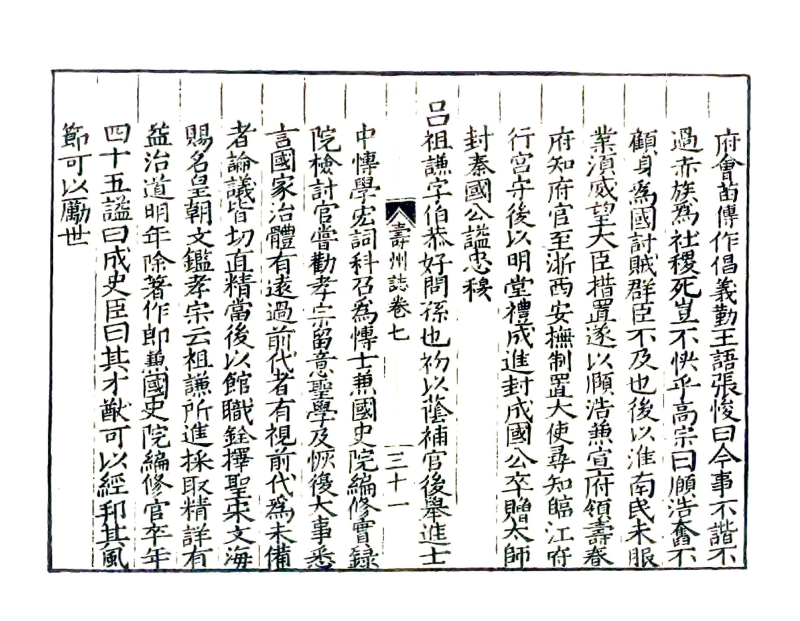 府會苗傳作倡義勤王語張悛曰今事不諧不
過赤族為社稷死豈不快乎高宗曰頋浩奮不
顧身為國討賊群臣不及也後以淮南民未服
業須威望大臣措置遂以頋浩兼宣府領壽春
府知府官至浙西安撫制置大使尋知臨江府
行宮守後以明堂禮成進封成國公卒贈太師
封秦國公謚忠穆
呂祖謙字伯恭好問孫也初以蔭補官後舉進士
壽州誌卷七
三十一
中博學宏詞科召為博士兼國史院編修實録
院檢討官嘗勸孝宗留意聖學及恢復大事悉
言國家治體有遠過前代者有視前代為未備
者論議皆切直精當後以館職銓擇聖宋文海
賜名皇朝文鑑孝宗云祖謙所進採取精詳有
益治道明年除著作郎兼國史院編修官卒年
四十五謚曰成史臣曰其才猷可以經邦其風
節可以勵世